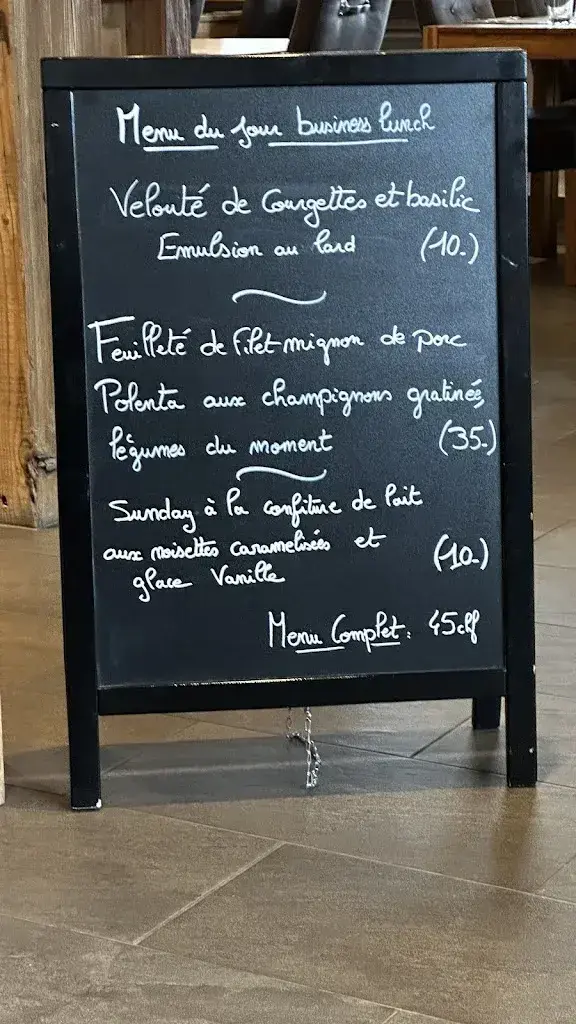 Menu du jour business lunch
Velouté de Courgettes et basilic
Emulsion au lard (10.-)
Feuilleté de filet mignon de porc
Polenta aux champignons gratinée,
légumes du moment (35.-)
Sunday à la confiture de lait
aux noisettes caramelisées et
glace Vanille (10.-)
Menu Complet: 45chf